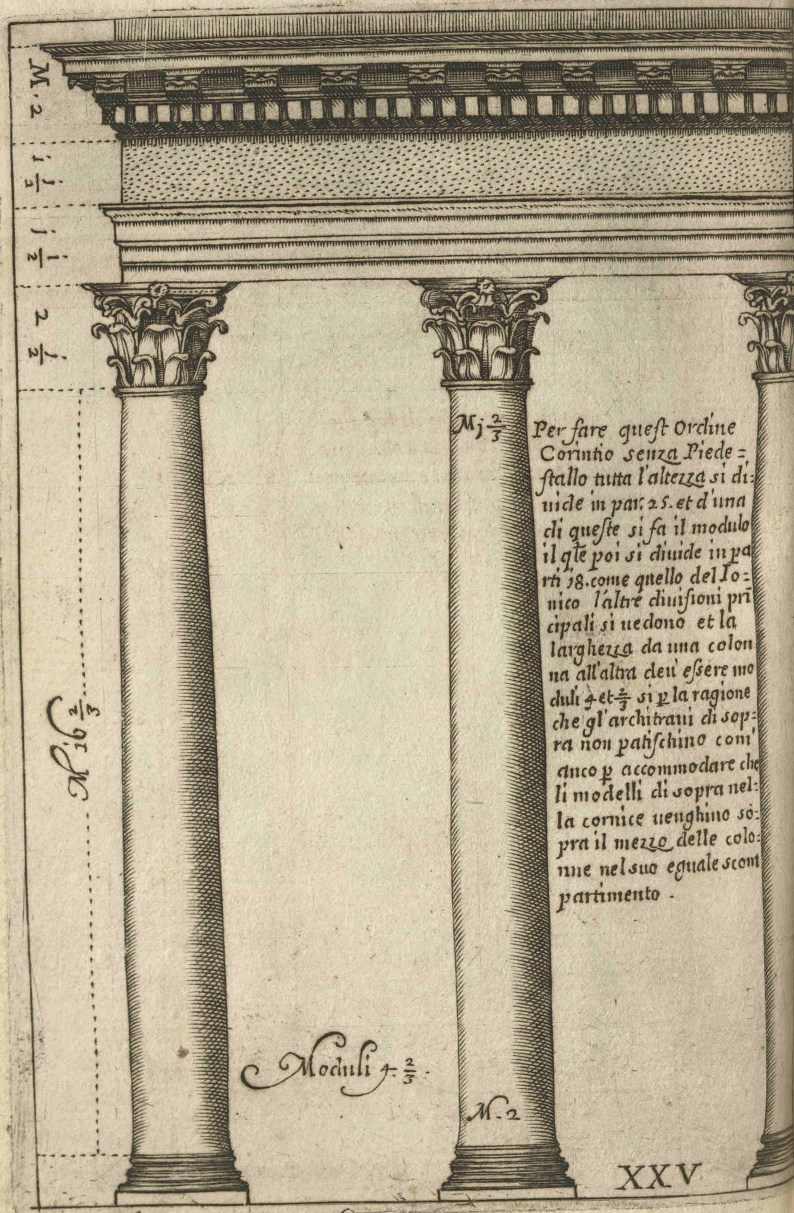 M. 2
j 1/2
j 1/2
2 1/2
M 16 2/3
Mj 2/3
Per fare quest Ordine
Corintio senza Piede=
stallo tutta l'altezza si di:
uide in par; 25. et d'una
di queste si fa il modulo
il qle poi si diuide in pa
rti 18. come quello del Io:
nico l'altre diuisioni pri
cipali si uedono et la
larghezza da una colon
na all'altra deu' essere mo
duli 4 et 2/3 si p la ragione
che gl'architraui di sop:
ra non patischino com'
anco p accommodare che
li modelli di sopra nel:
la cornice uenghino so:
pra il mezzo delle colo:
nne nel suo eguale scom
partimento.
Moduli 4 2/3.
M. 2
XXV